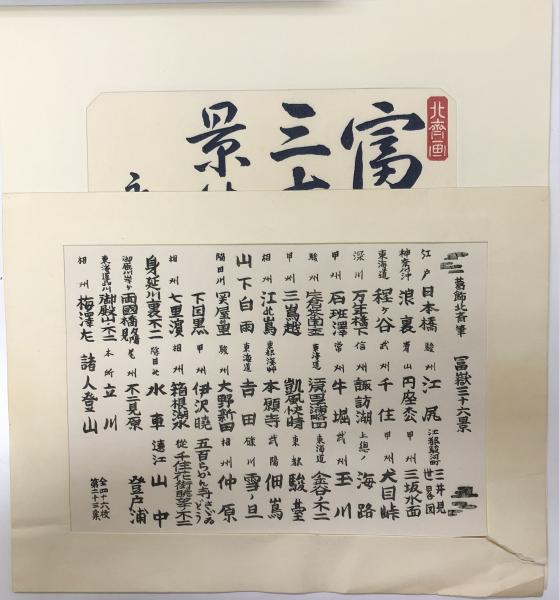 北齋画
富
三
景
葛飾北斎筆 冨嶽三十六景
江戸日本橋 駿州江尻 江都駿河町三井見世畧図
神奈川沖浪裏 青山円座枩 甲州三坂水面
東海道程ヶ谷 武州千住 甲州犬目峠
深川万年橋下 信州諏訪湖 上總ノ海路
甲州石班澤 常州牛堀 武州玉川
駿州 東海道 東海道金谷不二
甲州三嶌越 凱風快晴 東都駿臺
相州江ノ嶌 東都浅艸本願寺 武陽佃嶌
山下白雨 東海道吉田 礫川雪ノ旦
隅田川関屋ノ里 駿州大野新田 相州仲原
下目黒 甲州伊沢暁 五百らかん寺さゞゐどう
相州七里濵 相州箱根湖水 従千住花街眺望ノ不二
身延川裏不二 隠田水車 遠江山中
御厩川岸ヨリ両國橋夕陽見 尾州不二見原 登戸浦
東海道品川御殿山ノ不二 本所立川
相州梅澤左 諸人登山
全四十六枚
第二十三集